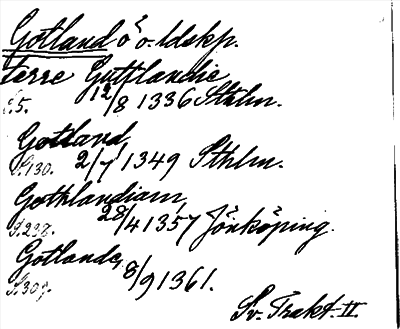 Gotland ö o. ldskp.
terre Gutlandie
S.5. 12/8 1336 Sthlm.
Gotland,
S.130. 2/7 1349 Sthlm.
Gothlandiam,
S.238. 28/4 1357 Jönköping.
Gotland,
8/9 1361.
Sv. Trakt. II.